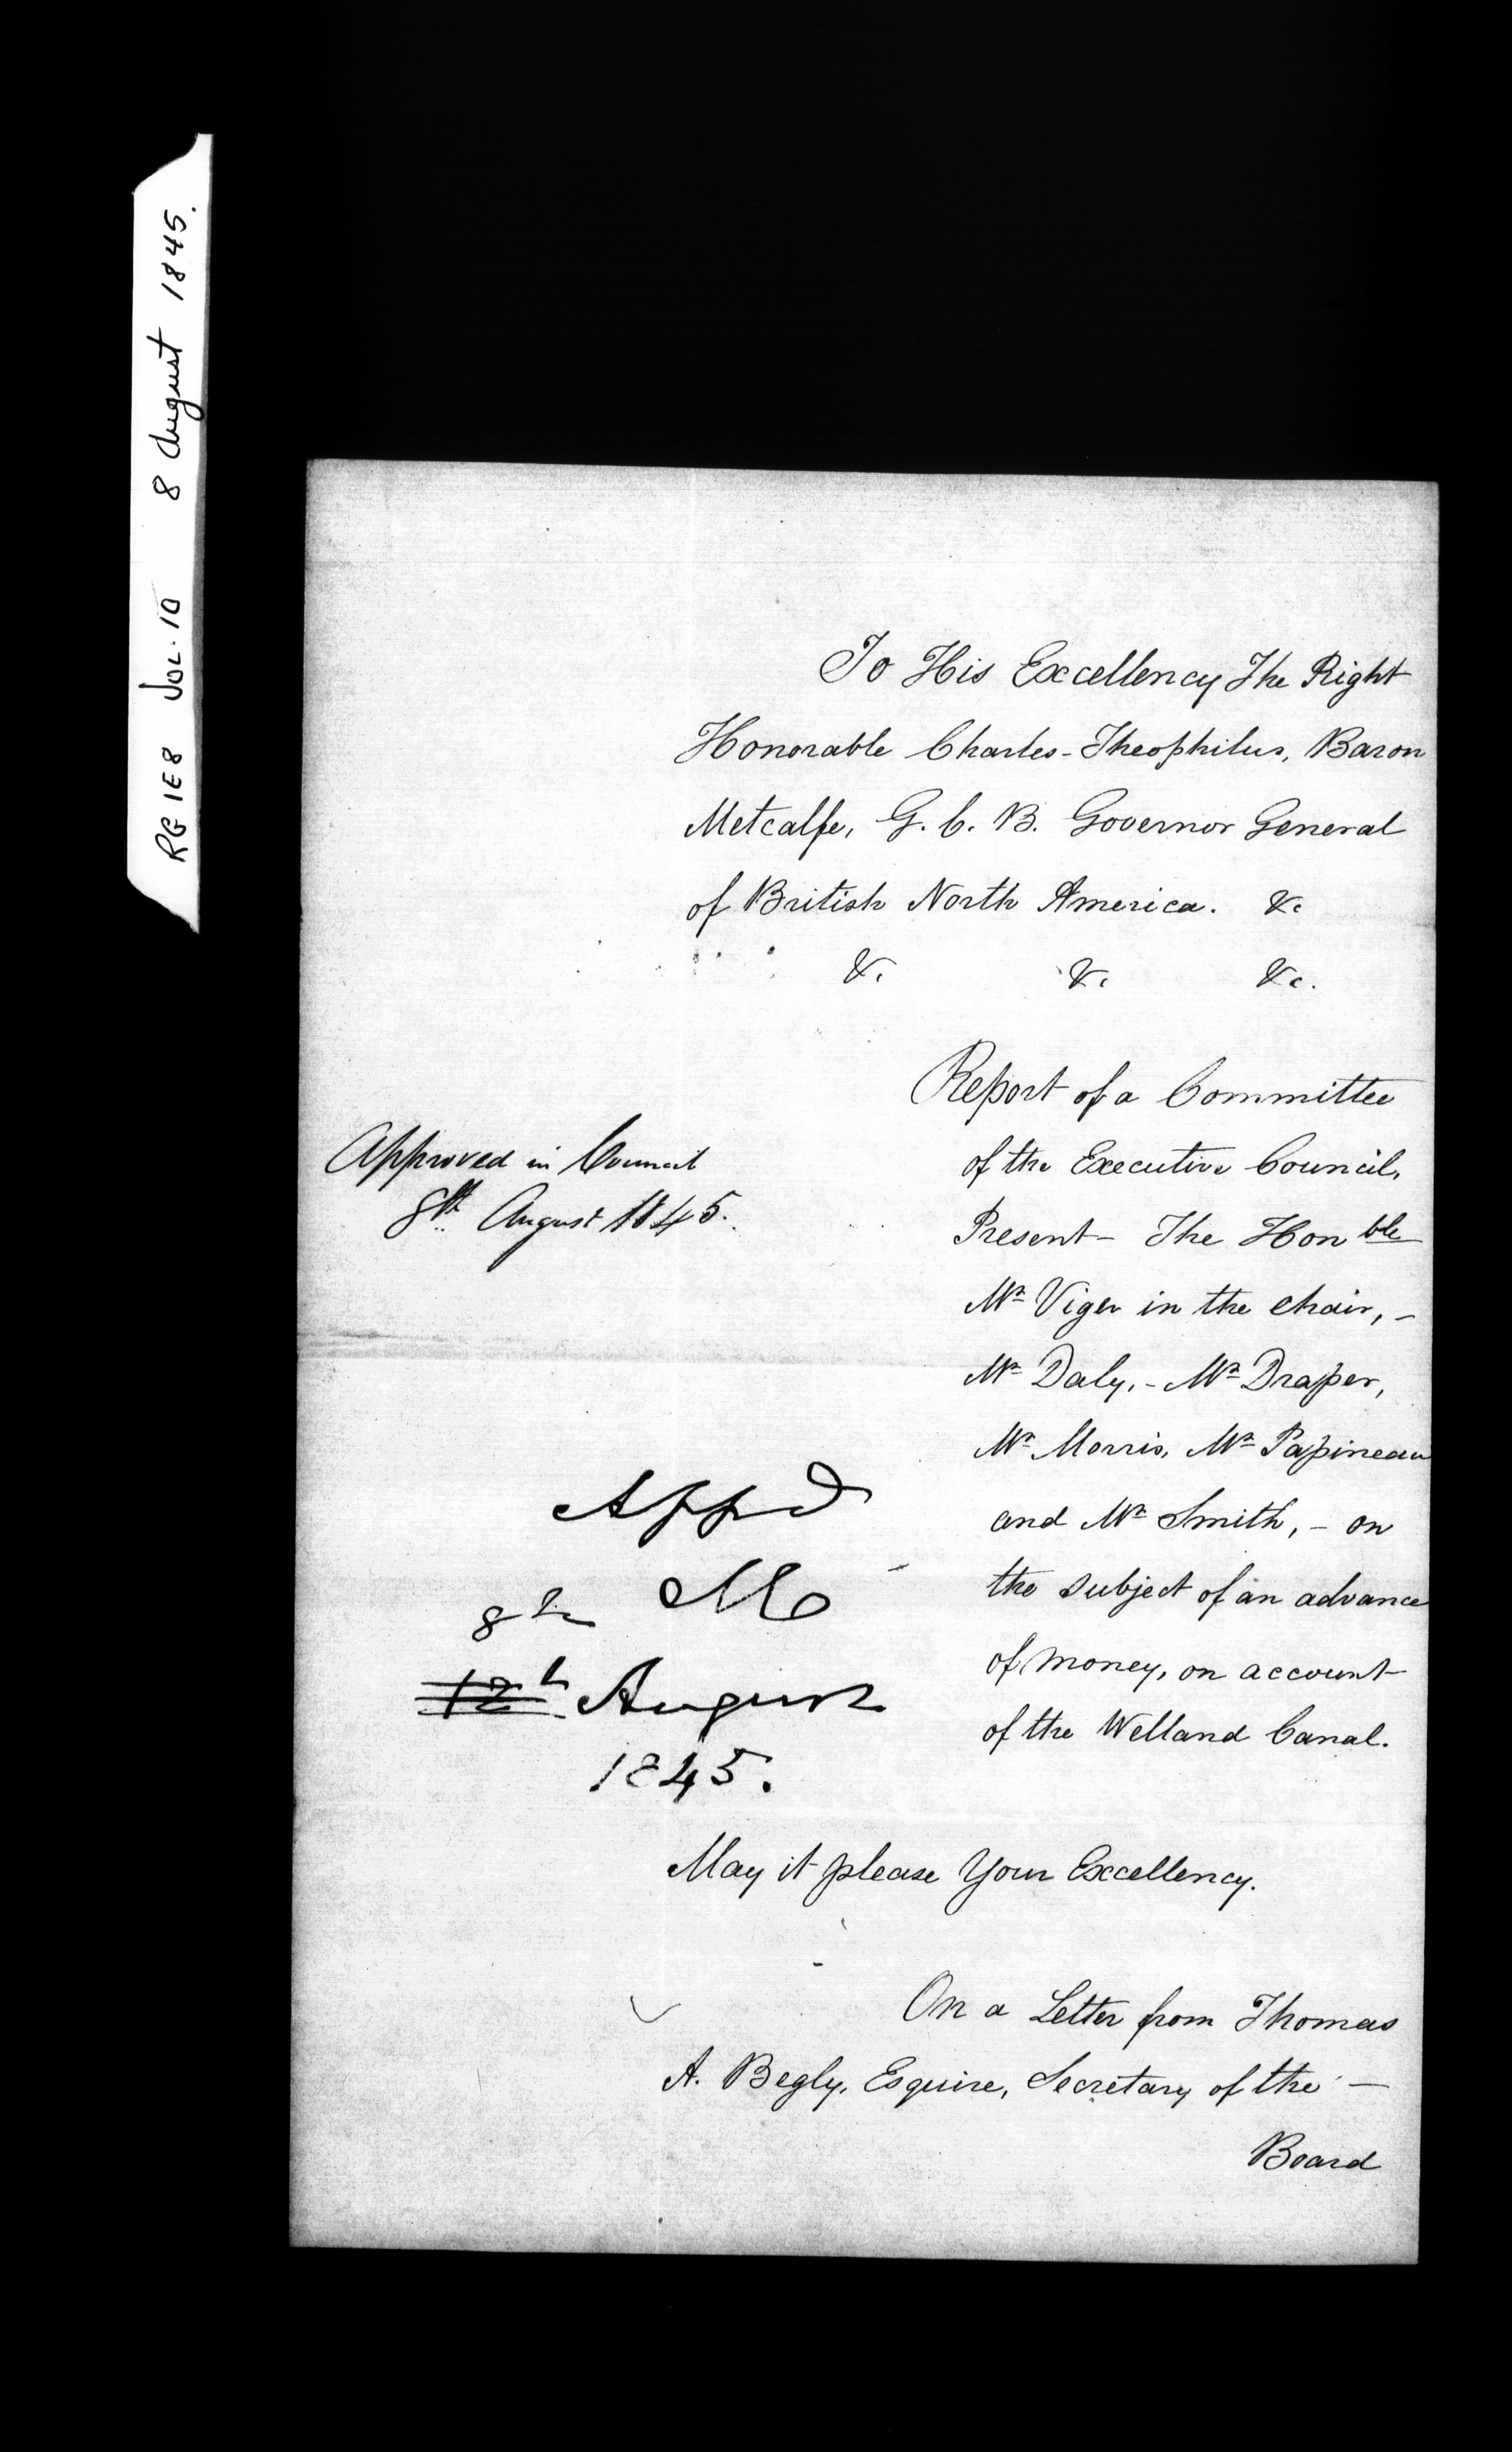 RG 1E8 VOL. 10 8 August 1845.
To His Excellency The Right
Honorable Charles-Theophilus, Baron
Metcalfe, G. C. B. Governor General
of British North America. &c
&c &c &c.
Report of a Committee
of the Executive Council,
Present- The Honble
Mr Viger in the chair, -
Mr Daly, - Mr Draper,
Mr Morris, Mr Papineau
and Mr Smith, - on
the subject of an advance
of money, on account
of the Welland Canal.
Approved in Council
8th August 1845.
Appd
M
8th
12th August
1845.
May it please Your Excellency.
On a Letter from Thomas
A. Begly, Esquire, Secretary of the -
Board